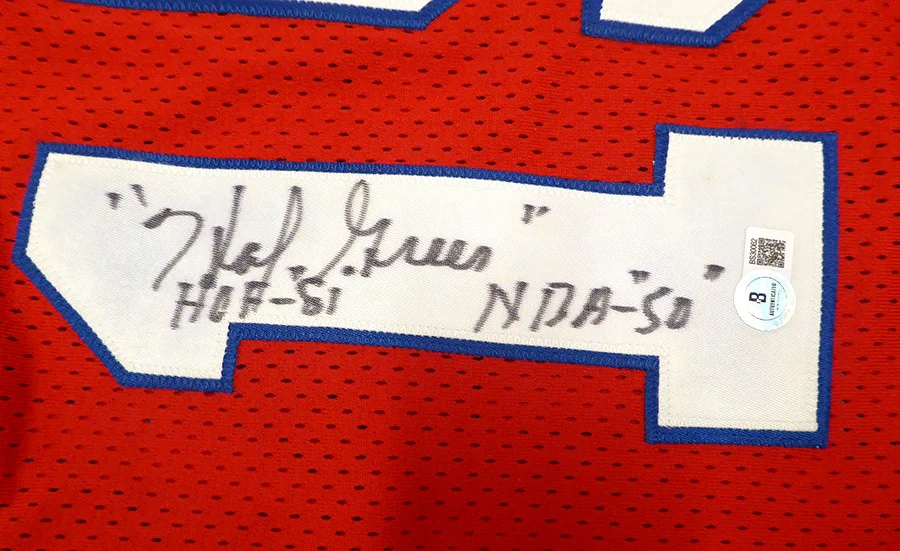 "Hal Greer"
HOF-"81"
NBA-"50"
BS30062
B
AUTHENTICATED